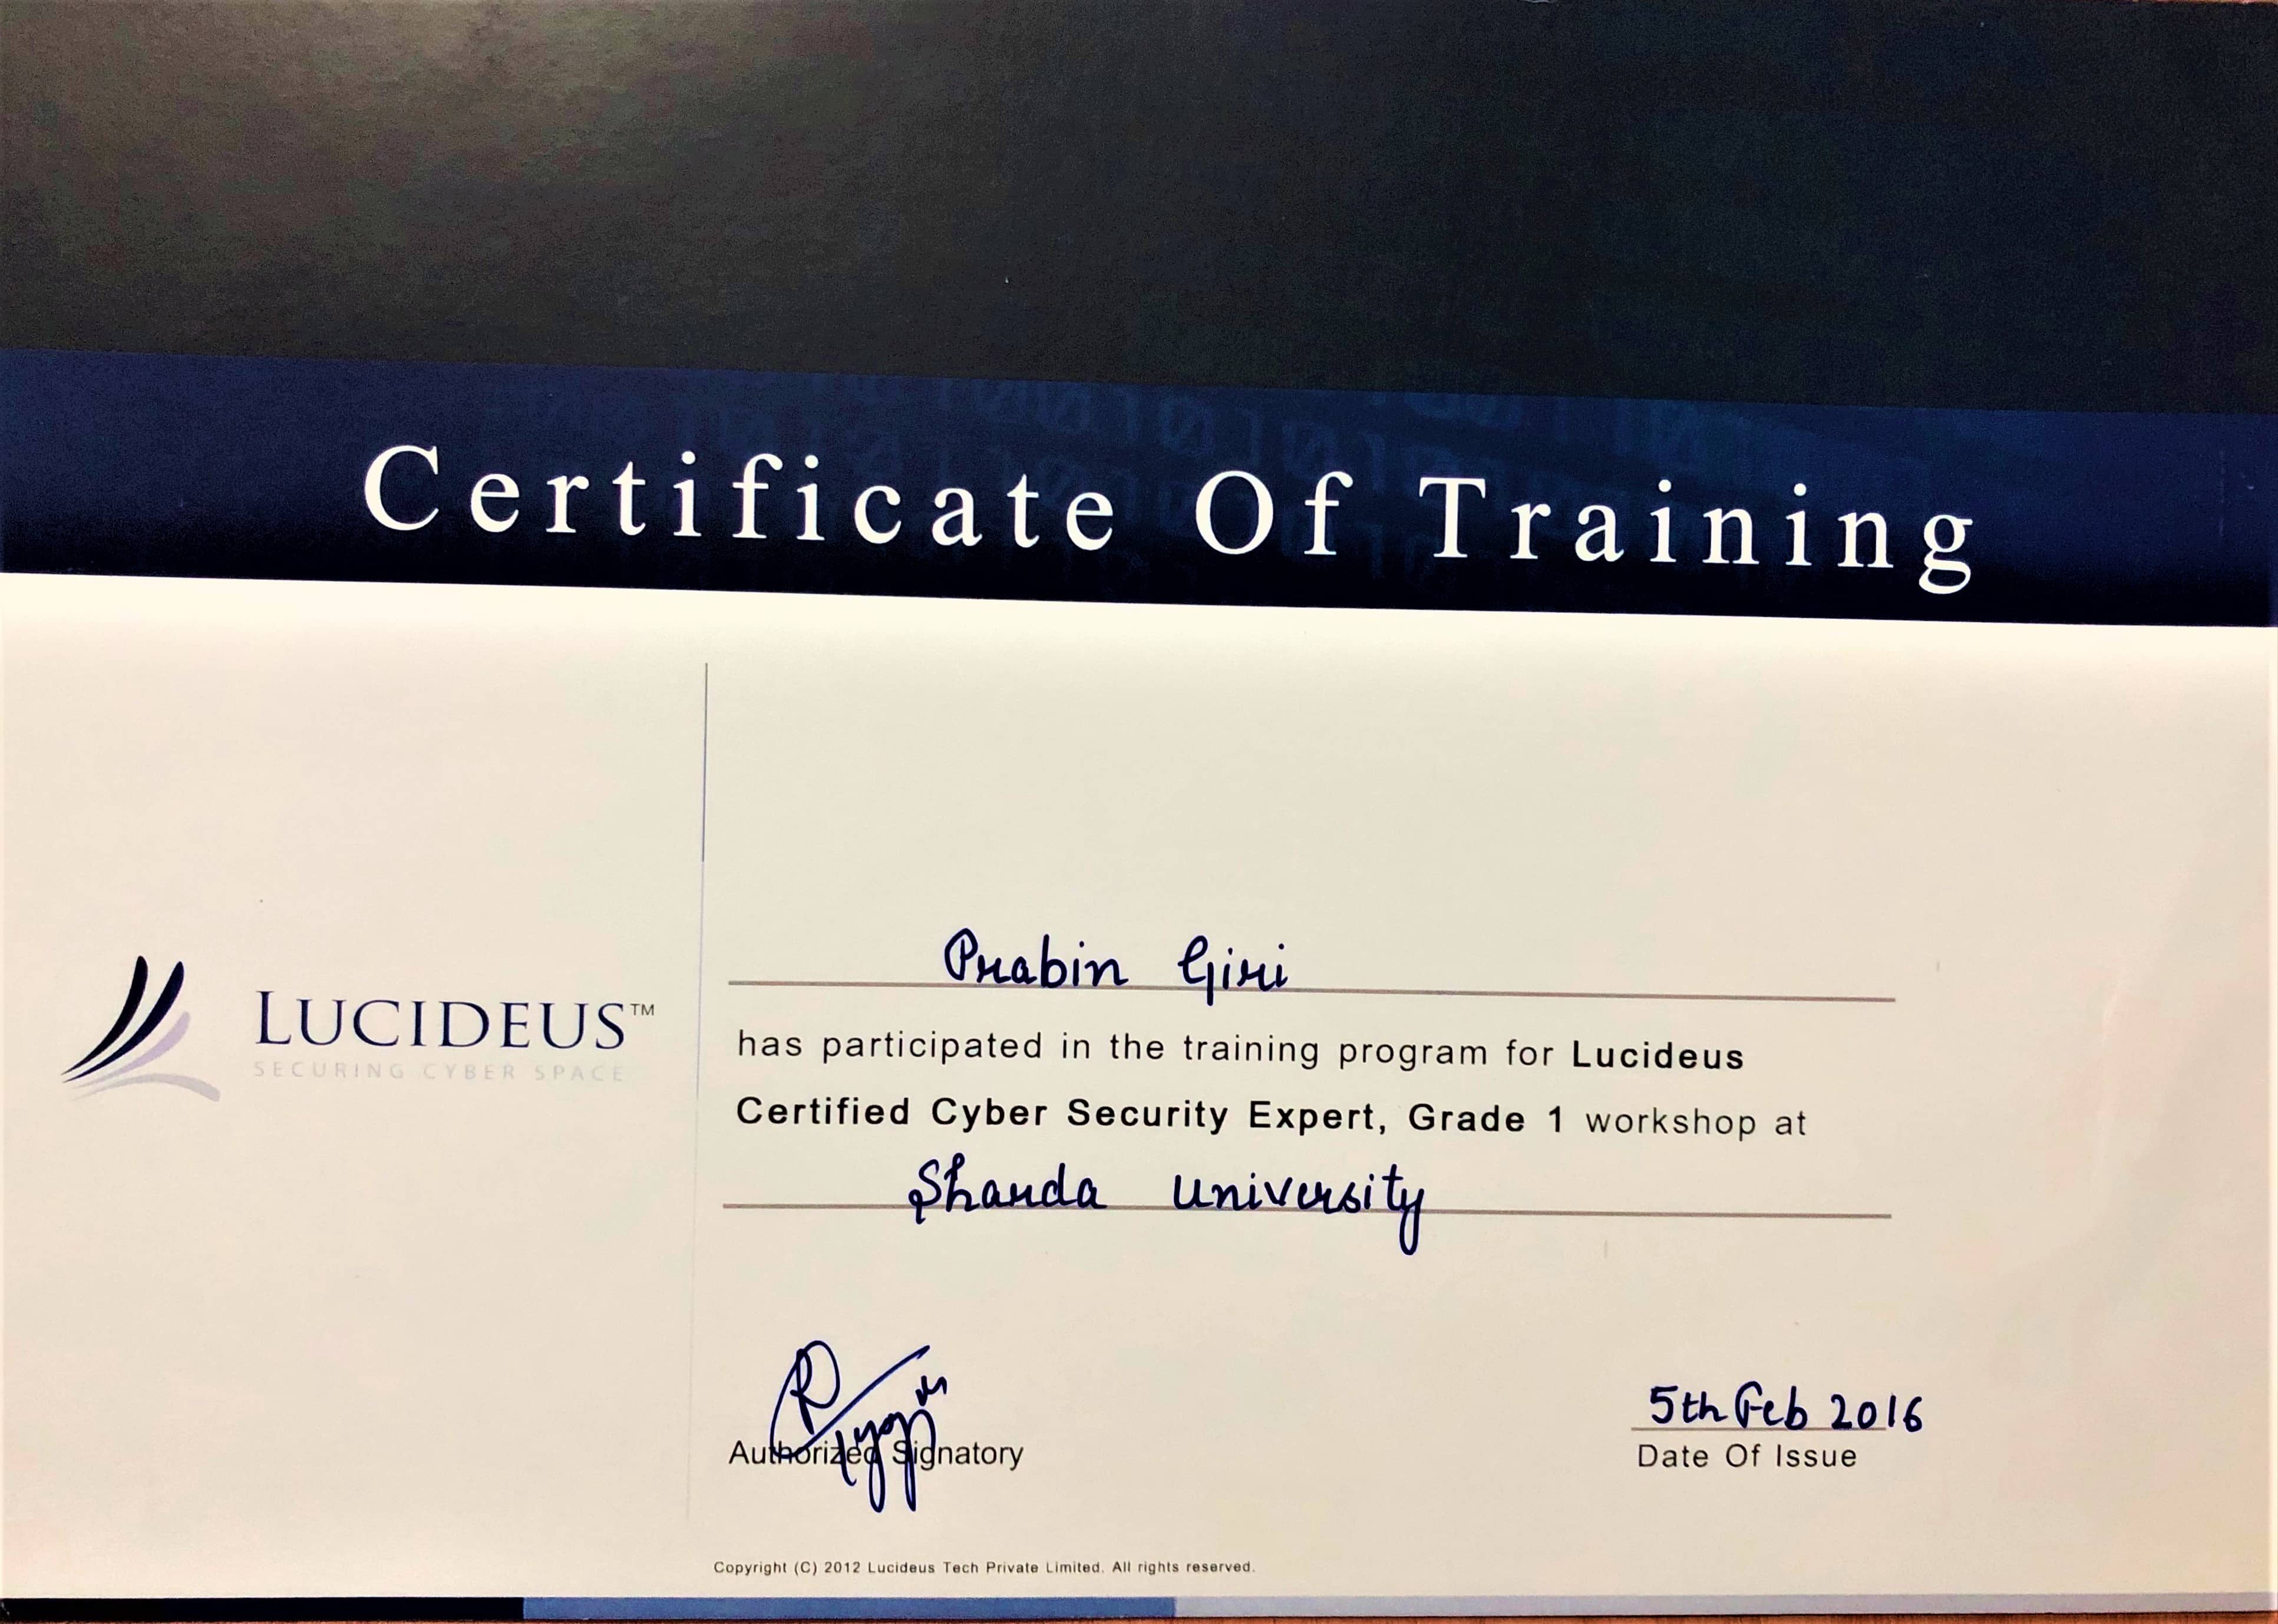 Certificate Of Training
LUCIDEUS™
SECURING CYBER SPACE
Prabin Giri
has participated in the training program for Lucideus
Certified Cyber Security Expert, Grade 1 workshop at
Sharda University
Authorized Signatory
5th Feb 2016
Date Of Issue
Copyright (C) 2012 Lucideus Tech Private Limited. All rights reserved.